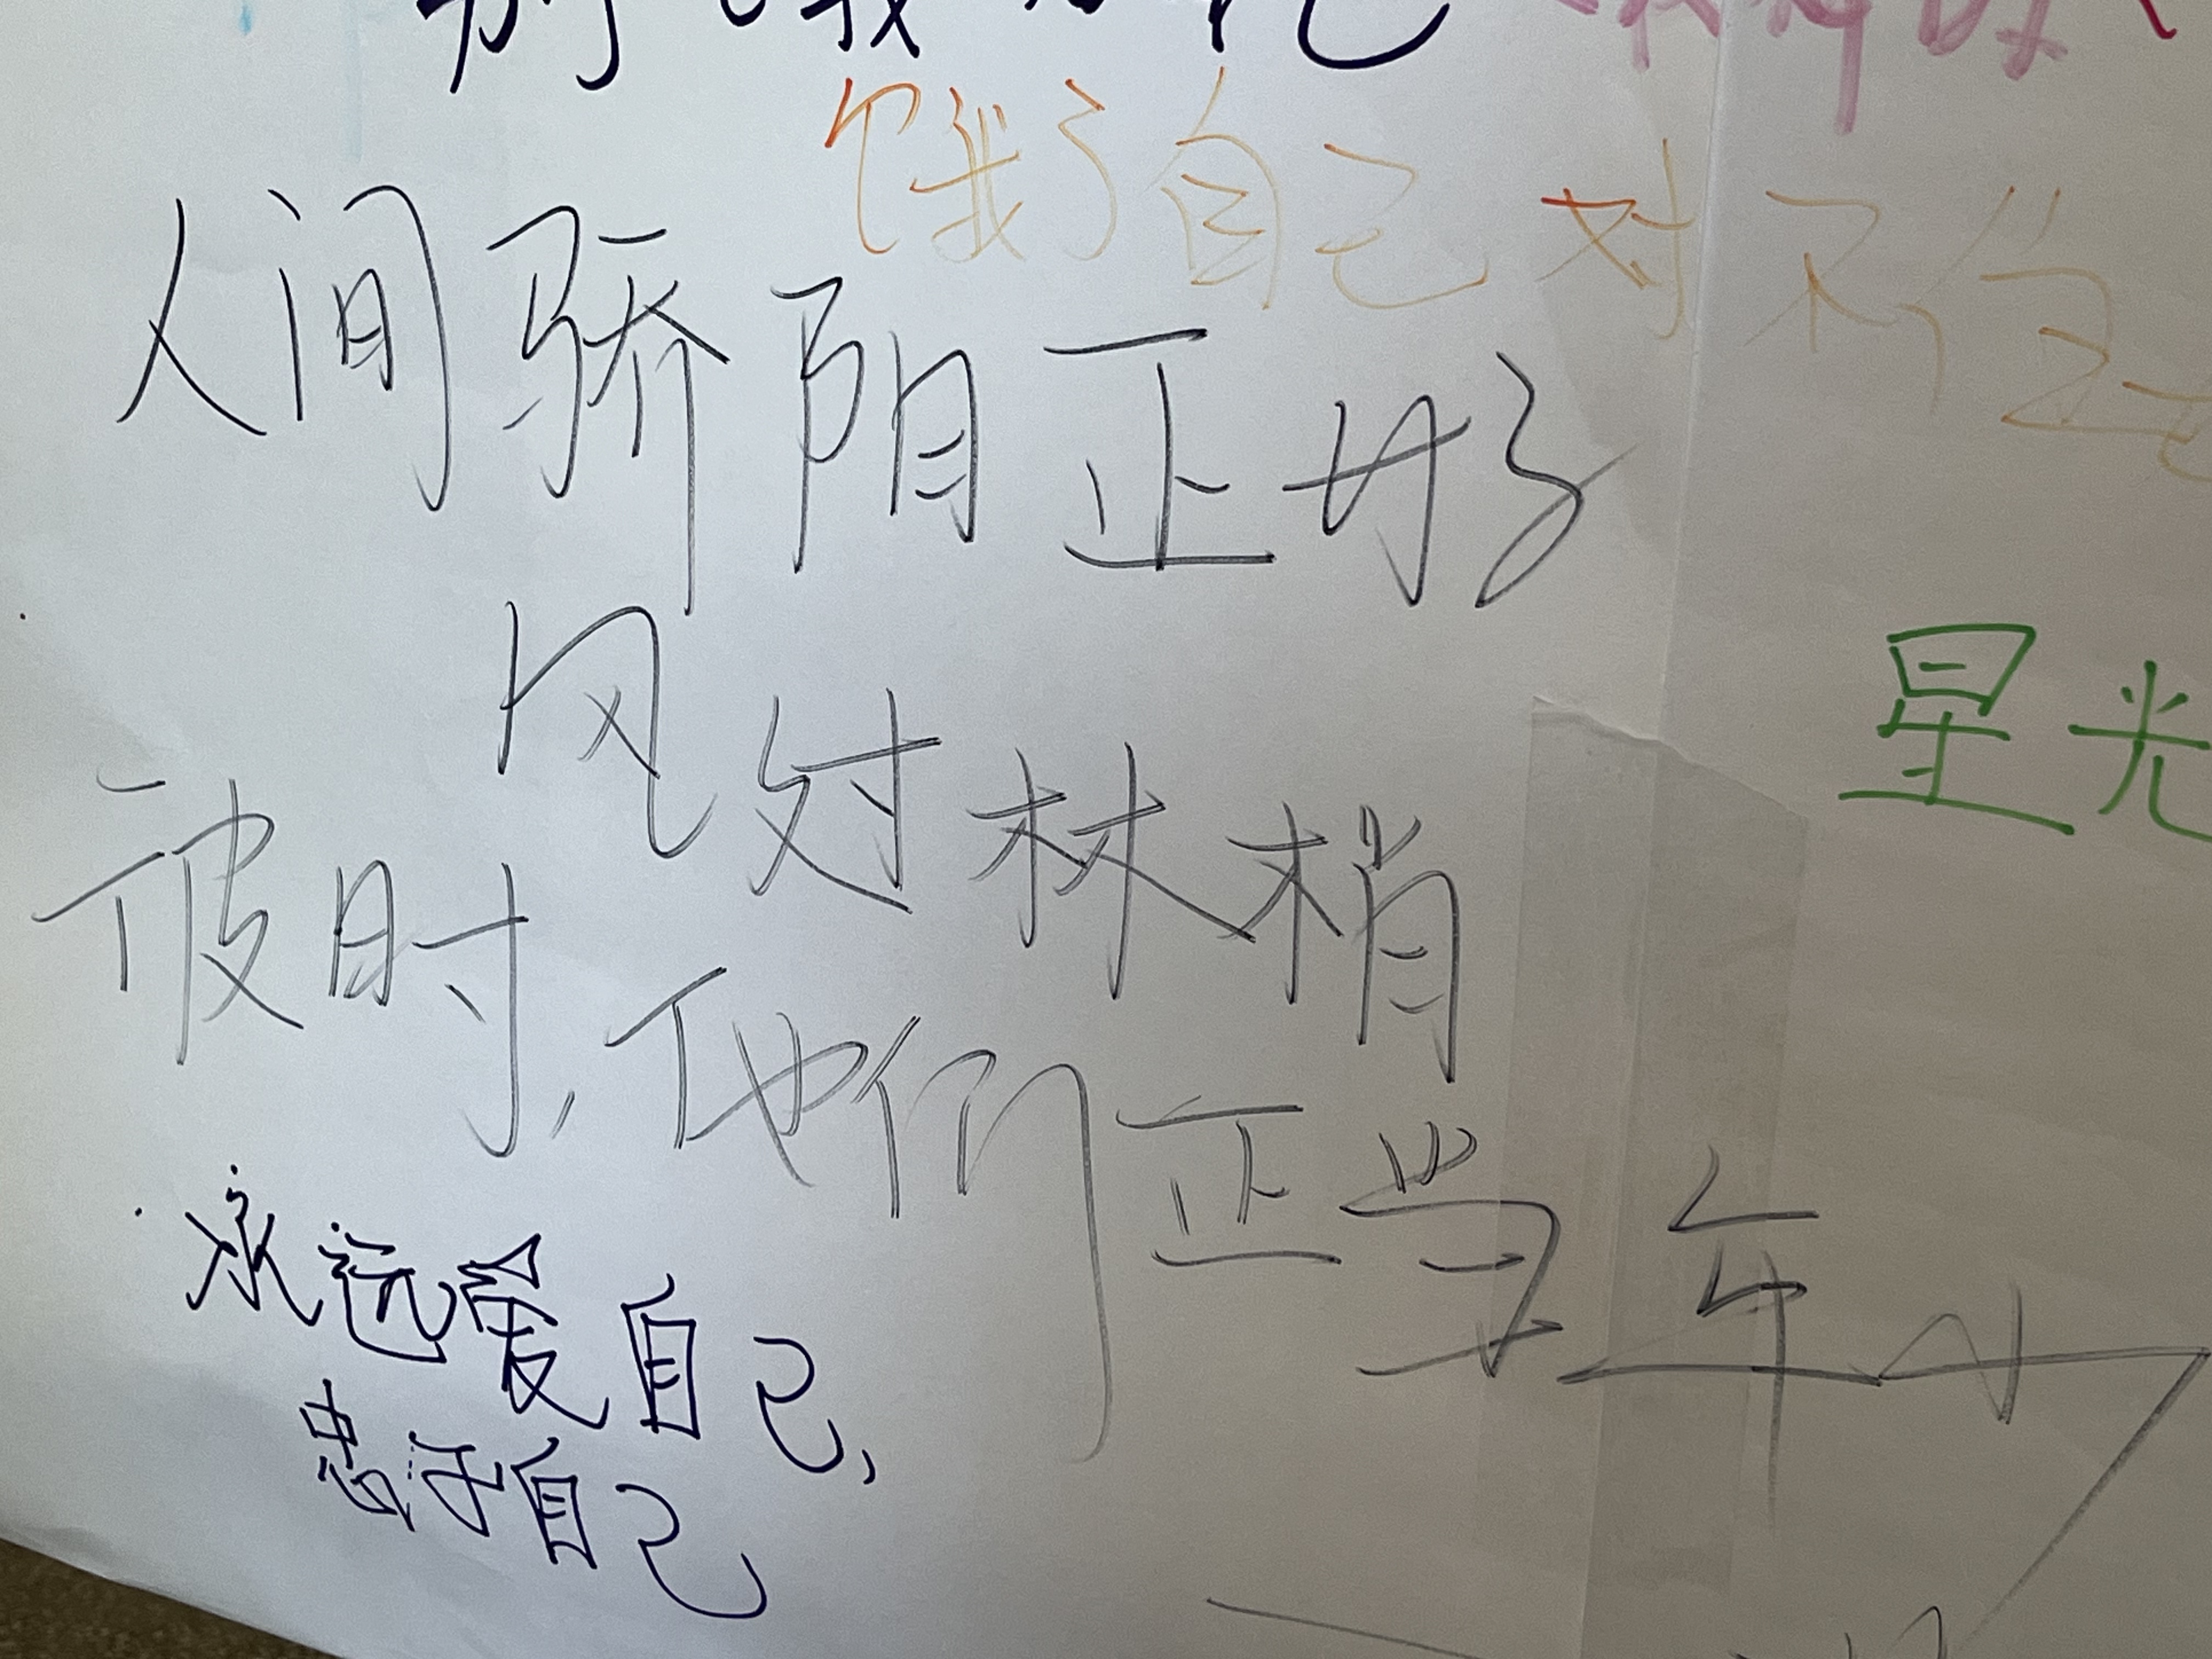 饿了自己对不住
人间骄阳正好
星光
风过林梢
彼时,他们正当年少
永远爱自己,
忠于自己